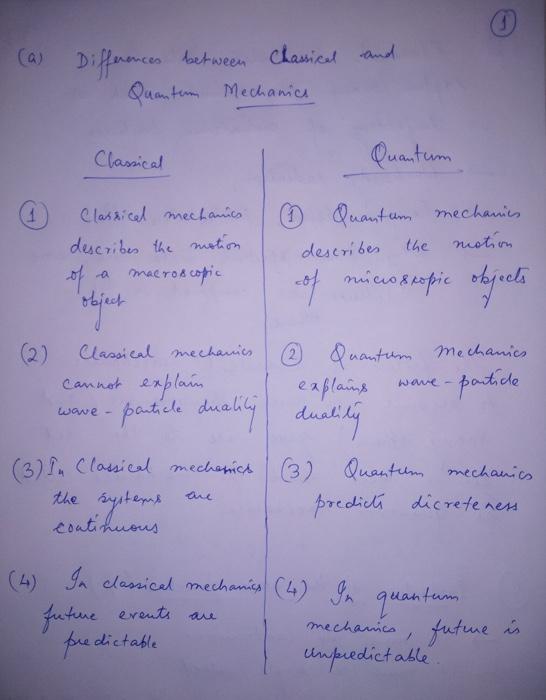 1
(a) Differences between Classical and
Quantum Mechanics
Classical
1 Classical mechanics
describes the motion
of a macroscopic
object
(2) Classical mechanics
cannot explain
wave - particle duality
(3) In Classical mechanics
the systems are
continuous
(4) In classical mechanics
future events are
predictable
Quantum
1 Quantum mechanics
describes the motion
of microscopic objects
2 Quantum Mechanics
explains wave - particle
duality
(3) Quantum mechanics
predicts discreteness
(4) In quantum
mechanics, future is
unpredictable.